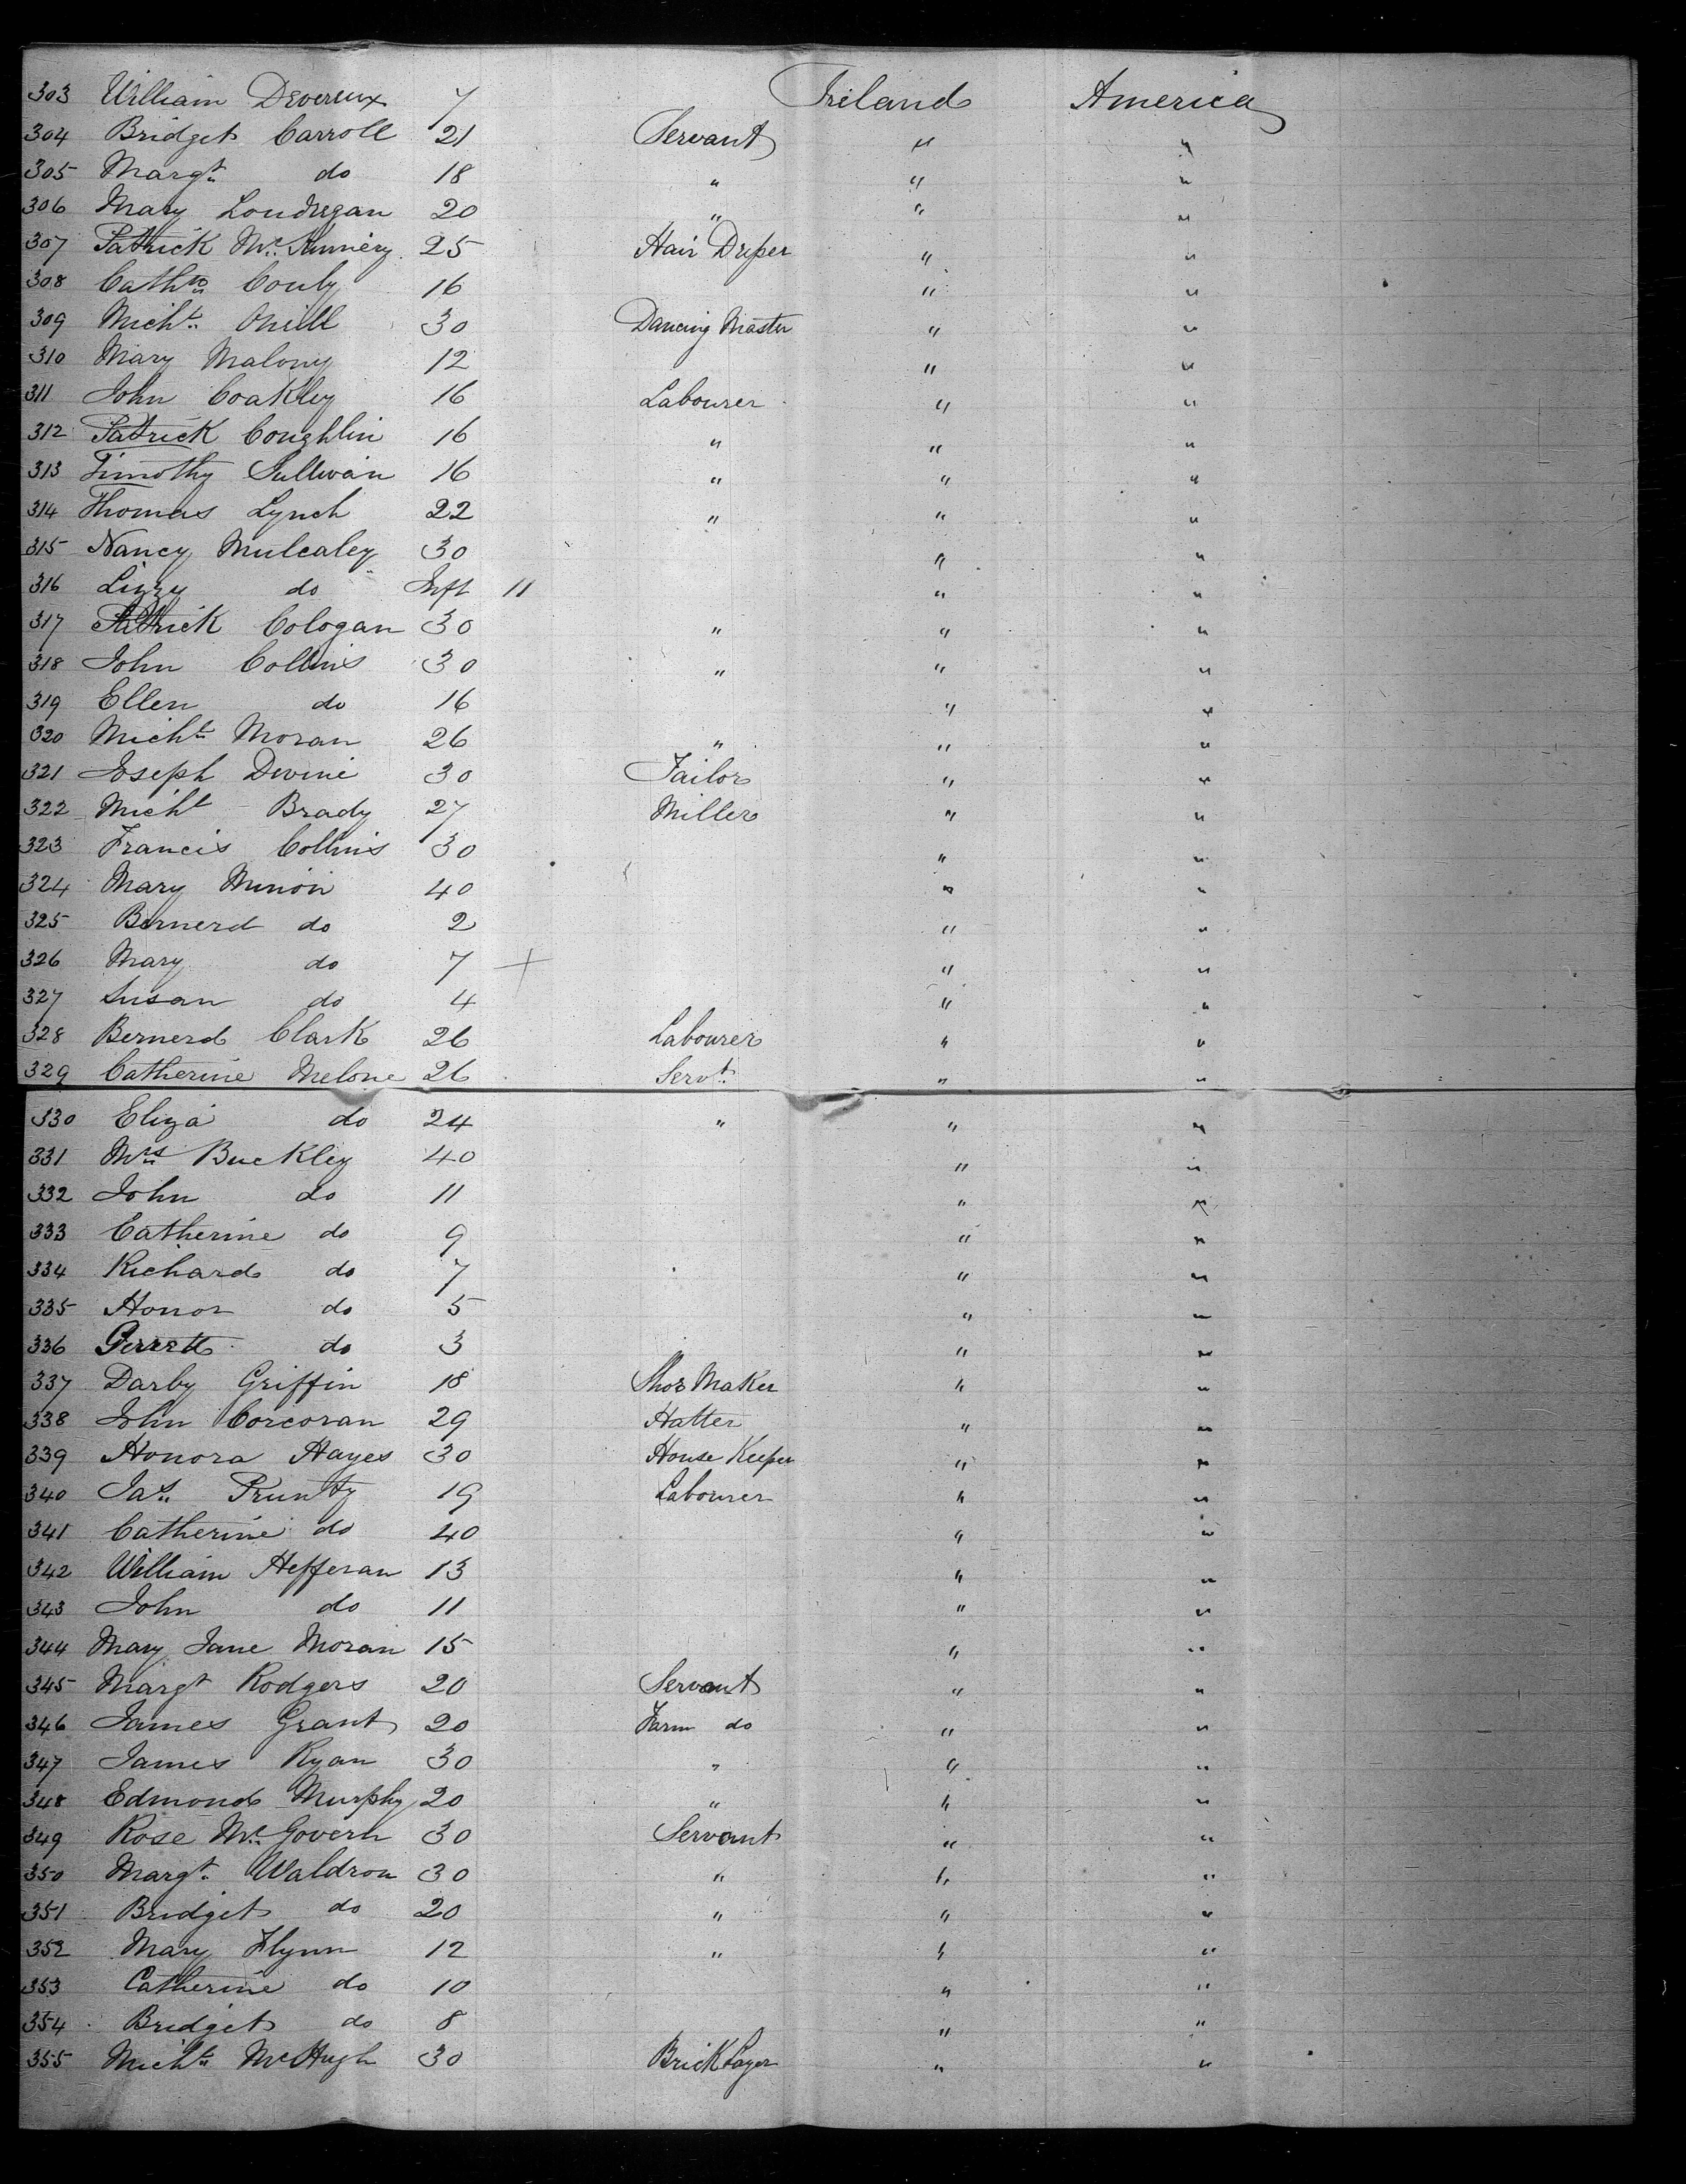 303 William Devereux 7 Ireland America
304 Bridget Carroll 21 Servant " "
305 Margt. do 18 " " "
306 Mary Londregan 20 " " "
307 Patrick Mc. 25 Hair Drsper " "
308 Cathn. 16 " "
309 Michl. Oneill 30 Dancing Master " "
310 Mary Malony 12 " "
311 John Coakley 16 Labourer " "
312 Patrick Coughlin 16 " " "
313 Timothy Sullivan 16 " " "
314 Thomas Lynch 22 " " "
315 Nancy Mulcaley 30 " "
316 Lizzy do Inft 11 " "
317 Patrick Cologan 30 " " "
318 John Collins 30 " " "
319 Ellen do 16 " "
320 Michl. Moran 26 " " "
321 Joseph Devine 30 Tailor " "
322 Michl Brady 27 Miller " "
323 Francis Collins 30 " "
324 Mary 40 " "
325 Bernerd do 2 " "
326 Mary do 7 + " "
327 Susan do 4 " "
328 Bernerd Clark 26 Labourer " "
329 Catherine Melone 26 Servt. " "
330 Eliza do 24 " " "
331 Mrs. Buckley 40 " "
332 John do 11 " "
333 Catherine do 9 " "
334 Richard do 7 " "
335 Honor do 5 " "
336 Gerrett do 3 " "
337 Darby Griffin 18 Shoe Maker " "
338 John Corcoran 29 Hatter " "
339 Honora Hayes 30 House Keeper " "
340 Jas. Prunty 19 Labourer " "
341 Catherine do 40 " "
342 William Hefferan 13 " "
343 John do 11 " "
344 Mary Jane Moran 15 " "
345 Margt Rodgers 20 Servant " "
346 James Grant 20 Farm do " "
347 James Ryan 30 " " "
348 Edmond Murphy 20 " " "
349 Rose Mc. Govern 30 Servant " "
350 Margt. Waldron 30 " " "
351 Bridget do 20 " " "
352 Mary Flynn 12 " " "
353 Catherine do 10 " "
354 Bridget do 8 " "
355 Michl. McHugh 30 Brick Layer " "